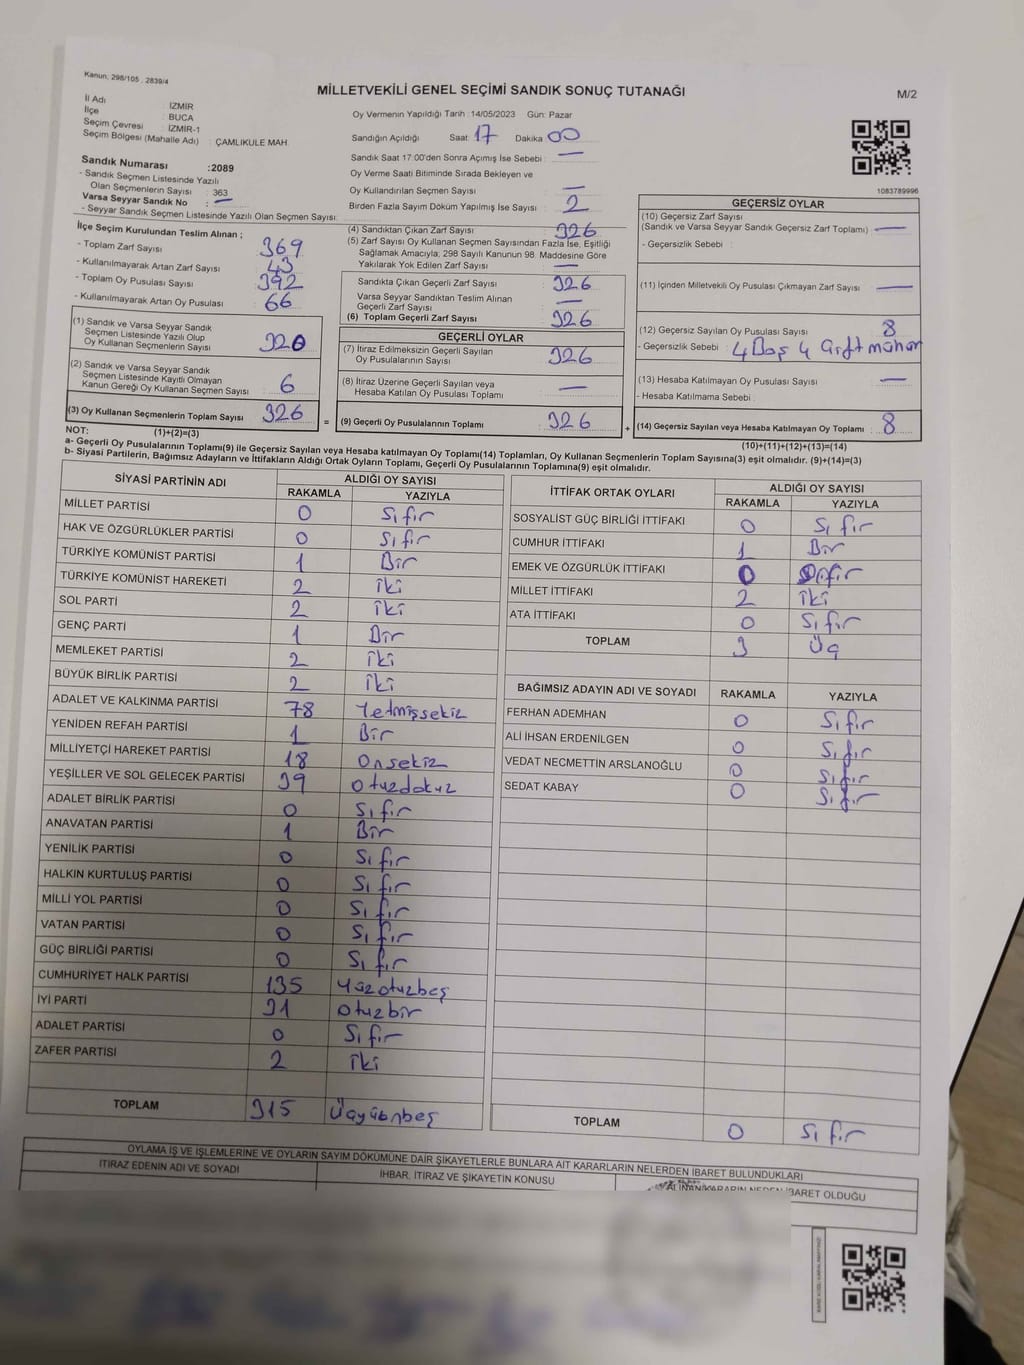 Kanun, 298/105 , 2839/4
MİLLETVEKİLİ GENEL SEÇİMİ SANDIK SONUÇ TUTANAĞI
M/2
İl Adı : İZMİR
İlçe : BUCA
Seçim Çevresi : İZMİR-1
Seçim Bölgesi (Mahalle Adı) : ÇAMLIKULE MAH.
Oy Vermenin Yapıldığı Tarih :14/05/2023 Gün: Pazar
Sandığın Açıldığı Saat: 17 Dakika: 00
Sandık Saat 17:00'den Sonra Açımış İse Sebebi : —
Oy Verme Saati Bitiminde Sırada Bekleyen ve
Oy Kullandırılan Seçmen Sayısı : —
Birden Fazla Sayım Döküm Yapılmış İse Sayısı : 2
1083789996
Sandık Numarası :2089
- Sandık Seçmen Listesinde Yazılı
Olan Seçmenlerin Sayısı : 363
Varsa Seyyar Sandık No : —
- Seyyar Sandık Seçmen Listesinde Yazılı Olan Seçmen Sayısı:
İlçe Seçim Kurulundan Teslim Alınan ;
- Toplam Zarf Sayısı : 369
- Kullanılmayarak Artan Zarf Sayısı : 43
- Toplam Oy Pusulası Sayısı : 392
- Kullanılmayarak Artan Oy Pusulası : 66
(1) Sandık ve Varsa Seyyar Sandık
Seçmen Listesinde Yazılı Olup
Oy Kullanan Seçmenlerin Sayısı : 320
(2) Sandık ve Varsa Seyyar Sandık
Seçmen Listesinde Kayıtlı Olmayan
Kanun Gereği Oy Kullanan Seçmen Sayısı : 6
(3) Oy Kullanan Seçmenlerin Toplam Sayısı : 326
(4) Sandıktan Çıkan Zarf Sayısı : 326
(5) Zarf Sayısı Oy Kullanan Seçmen Sayısından Fazla İse, Eşitliği
Sağlamak Amacıyla; 298 Sayılı Kanunun 98. Maddesine Göre
Yakılarak Yok Edilen Zarf Sayısı : —
Sandıkta Çıkan Geçerli Zarf Sayısı : 326
Varsa Seyyar Sandıktan Teslim Alınan
Geçerli Zarf Sayısı : —
(6) Toplam Geçerli Zarf Sayısı : 326
GEÇERLİ OYLAR
(7) İtiraz Edilmeksizin Geçerli Sayılan
Oy Pusulalarının Sayısı : 326
(8) İtiraz Üzerine Geçerli Sayılan veya
Hesaba Katılan Oy Pusulası Toplamı : —
= (9) Geçerli Oy Pusulalarının Toplamı : 326 +
GEÇERSİZ OYLAR
(10) Geçersiz Zarf Sayısı
(Sandık ve Varsa Seyyar Sandık Geçersiz Zarf Toplamı) : —
- Geçersizlik Sebebi :
(11) İçinden Milletvekili Oy Pusulası Çıkmayan Zarf Sayısı : —
(12) Geçersiz Sayılan Oy Pusulası Sayısı : 8
- Geçersizlik Sebebi : 4 Boş 4 Çift mühür
(13) Hesaba Katılmayan Oy Pusulası Sayısı : —
- Hesaba Katılmama Sebebi :
(14) Geçersiz Sayılan veya Hesaba Katılmayan Oy Toplamı : 8
NOT: (1)+(2)=(3)
(10)+(11)+(12)+(13)=(14)
a- Geçerli Oy Pusulalarının Toplamı(9) ile Geçersiz Sayılan veya Hesaba katılmayan Oy Toplamı(14) Toplamları, Oy Kullanan Seçmenlerin Toplam Sayısına(3) eşit olmalıdır. (9)+(14)=(3)
b- Siyasi Partilerin, Bağımsız Adayların ve İttifakların Aldığı Ortak Oyların Toplamı, Geçerli Oy Pusulalarının Toplamına(9) eşit olmalıdır.
SİYASİ PARTİNİN ADI ALDIĞI OY SAYISI
RAKAMLA YAZIYLA
MİLLET PARTİSİ 0 Sıfır
HAK VE ÖZGÜRLÜKLER PARTİSİ 0 Sıfır
TÜRKİYE KOMÜNİST PARTİSİ 1 Bir
TÜRKİYE KOMÜNİST HAREKETİ 2 iki
SOL PARTİ 2 iki
GENÇ PARTİ 1 Bir
MEMLEKET PARTİSİ 2 iki
BÜYÜK BİRLİK PARTİSİ 2 iki
ADALET VE KALKINMA PARTİSİ 78 Yetmişsekiz
YENİDEN REFAH PARTİSİ 1 Bir
MİLLİYETÇİ HAREKET PARTİSİ 18 Onsekiz
YEŞİLLER VE SOL GELECEK PARTİSİ 39 Otuzdokuz
ADALET BİRLİK PARTİSİ 0 Sıfır
ANAVATAN PARTİSİ 1 Bir
YENİLİK PARTİSİ 0 Sıfır
HALKIN KURTULUŞ PARTİSİ 0 Sıfır
MİLLİ YOL PARTİSİ 0 Sıfır
VATAN PARTİSİ 0 Sıfır
GÜÇ BİRLİĞİ PARTİSİ 0 Sıfır
CUMHURİYET HALK PARTİSİ 135 Yüzotuzbeş
İYİ PARTİ 31 Otuzbir
ADALET PARTİSİ 0 Sıfır
ZAFER PARTİSİ 2 iki
TOPLAM 315 Üçyüzonbeş
İTTİFAK ORTAK OYLARI ALDIĞI OY SAYISI
RAKAMLA YAZIYLA
SOSYALİST GÜÇ BİRLİĞİ İTTİFAKI 0 Sıfır
CUMHUR İTTİFAKI 1 Bir
EMEK VE ÖZGÜRLÜK İTTİFAKI 0 Sıfır
MİLLET İTTİFAKI 2 iki
ATA İTTİFAKI 0 Sıfır
TOPLAM 3 Üç
BAĞIMSIZ ADAYIN ADI VE SOYADI RAKAMLA YAZIYLA
FERHAN ADEMHAN 0 Sıfır
ALİ İHSAN ERDENİLGEN 0 Sıfır
VEDAT NECMETTİN ARSLANOĞLU 0 Sıfır
SEDAT KABAY 0 Sıfır
TOPLAM 0 Sıfır
OYLAMA İŞ VE İŞLEMLERİNE VE OYLARIN SAYIM DÖKÜMÜNE DAİR ŞİKAYETLERLE BUNLARA AİT KARARLARIN NELERDEN İBARET BULUNDUKLARI
İTİRAZ EDENİN ADI VE SOYADI İHBAR, İTİRAZ VE ŞİKAYETİN KONUSU ALINAN KARARIN NEDEN İBARET OLDUĞU